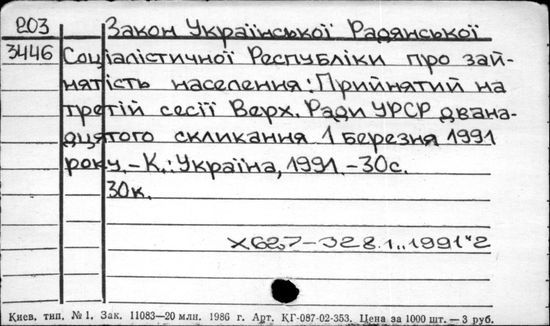 203
Закон Української Радянської
3446
Соціалістичної Республіки про зай-
нятість населення: Прийнятий на
третій сесії Верх. Ради УРСР двана-
дцятого скликання 1 березня 1991
року. – К.: Україна, 1991. – 30с.
30к.
X627-328.1„1991"2
Киев. тип. № 1. Зак. 11083—20 млн. 1986 г. Арт. КГ-087-02-353. Цена за 1000 шт. — 3 руб.